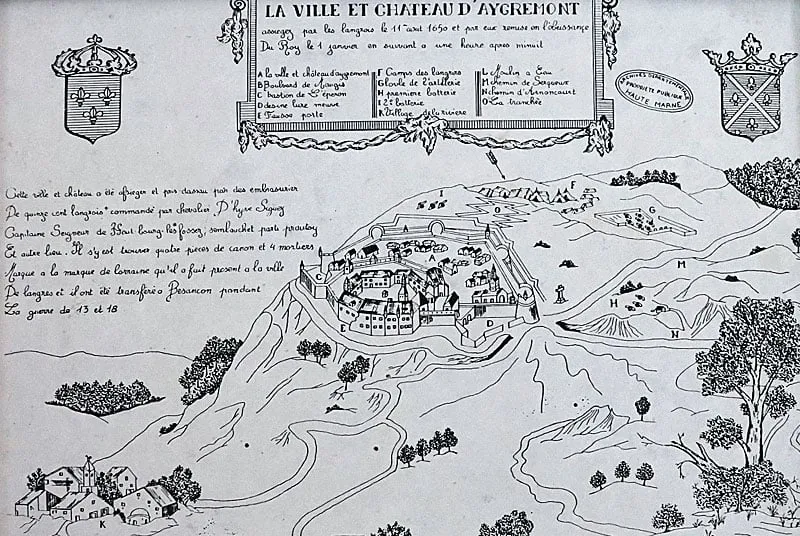 LA VILLE ET CHATEAU D'AYGREMONT
assiegez par les langrois le 11 aout 1650 et par eux remise en l'obeissance
Du Roy le 1 janver en suivant a une heure apres minuit
A la ville et château d'aygremont
B Boulvard de
C bastion de L'éperon
D demie lune neuve
E Fausse porte
F Camps des langrois
G loule de l'artillerie
H premiere batterie
I 2e batterie
K Village de la riviere
L Moulin a Eau
M chemin de Serqueux
N chemin d'Arnoncourt
O La tranchée
ARCHIVES DEPARTEMENTALES
PROPRIÉTÉ PUBLIQUE
HAUTE MARNE
Cette ville et château a été assieger et pris dassau par des embrasurier
De quinze cent langrois commandé par chevalier, D'hyre Seguey
Capitaine Seigneur de Haut bourg les fossez, semlouchet parti
Et autre lieu. Il s'y est trouver quatre pieces de canon et 4 mortiers
Marque a la marque de lorraine qu'il a fait present a la ville
De langres et il ont été transféré a Besancon pendant
La guerre de 13 et 18
I
F
O
G
A
A
M
C
H
B
E
D
N
K